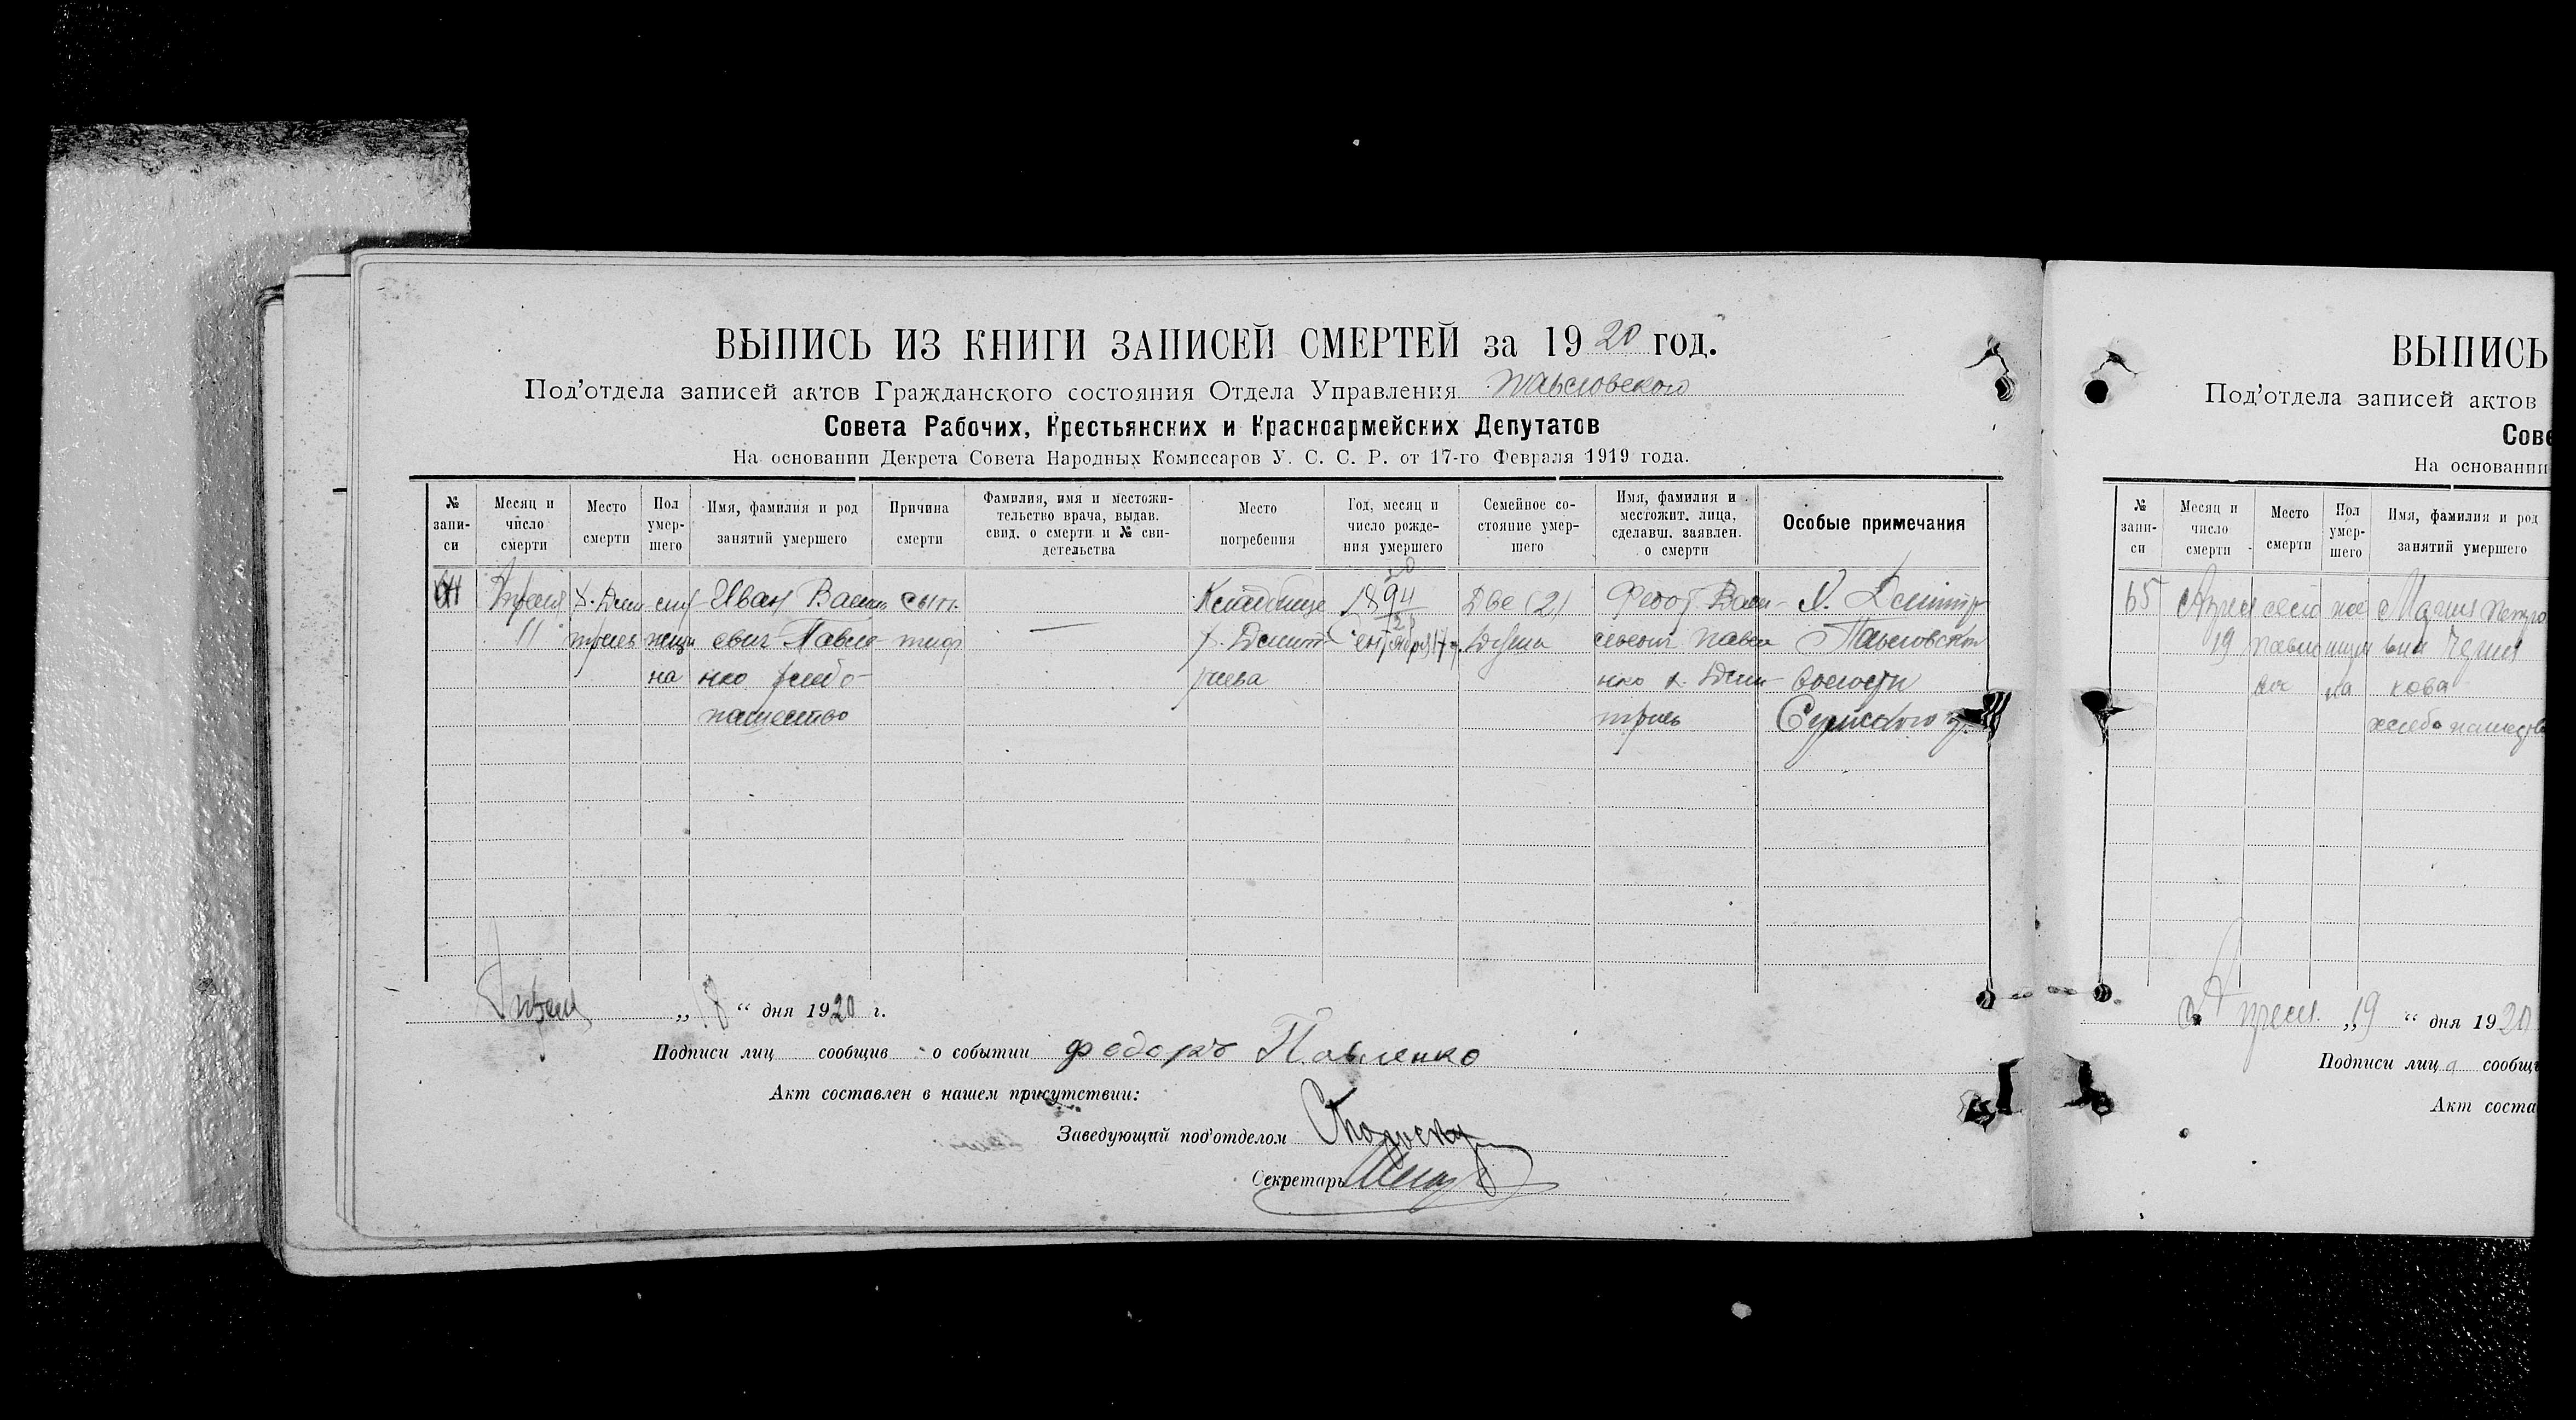 ВЫПИСЬ ИЗ КНИГИ ЗАПИСЕЙ СМЕРТЕЙ за 1920 год.
Под'отдела записей актов Гражданского состояния Отдела Управления
Совета Рабочих, Крестьянских и Красноармейских Депутатов
На основании Декрета Совета Народных Комиссаров У. С. С. Р. от 17-го Февраля 1919 года.
№ запи-
си
Месяц и
число
смерти
Место
смерти
Пол
умер-
шего
Имя, фамилия и род
занятий умершего
Причина
смерти
Фамилия, имя и местожи-
тельство врача, выдав.
свид. о смерти и № сви-
детельства
Место
погребения
Год, месяц и
число рожде-
ния умершего
Семейное со-
стояние умер-
шего
Имя, фамилия и
местожит. лица,
сделавш. заявлен.
о смерти
Особые примечания
Апреля
11
Иван Васи
евич Павле
нко хлебо-
пашество
сып.
тиф
Кладбище
х. Дмит-
риева
1894
Две (2)
Души
Федот Васи-
льевич Павле
нко х. Дми-
триев
Х. Дмитр
волости
Апреля „18“ дня 1920 г.
Подписи лиц сообщив о событии Федоръ Павленко
Акт составлен в нашем присутствии:
Заведующий под'отделом
Секретарь
ВЫПИСЬ
Под'отдела записей актов
Сове
На основании
№
запи-
си
Месяц и
число
смерти
Место
смерти
Пол
умер-
шего
Имя, фамилия и род
занятий умершего
65
19
село
кова
хлебопашество
Апреля „19“ дня 1920
Подписи лица сообщ
Акт соста